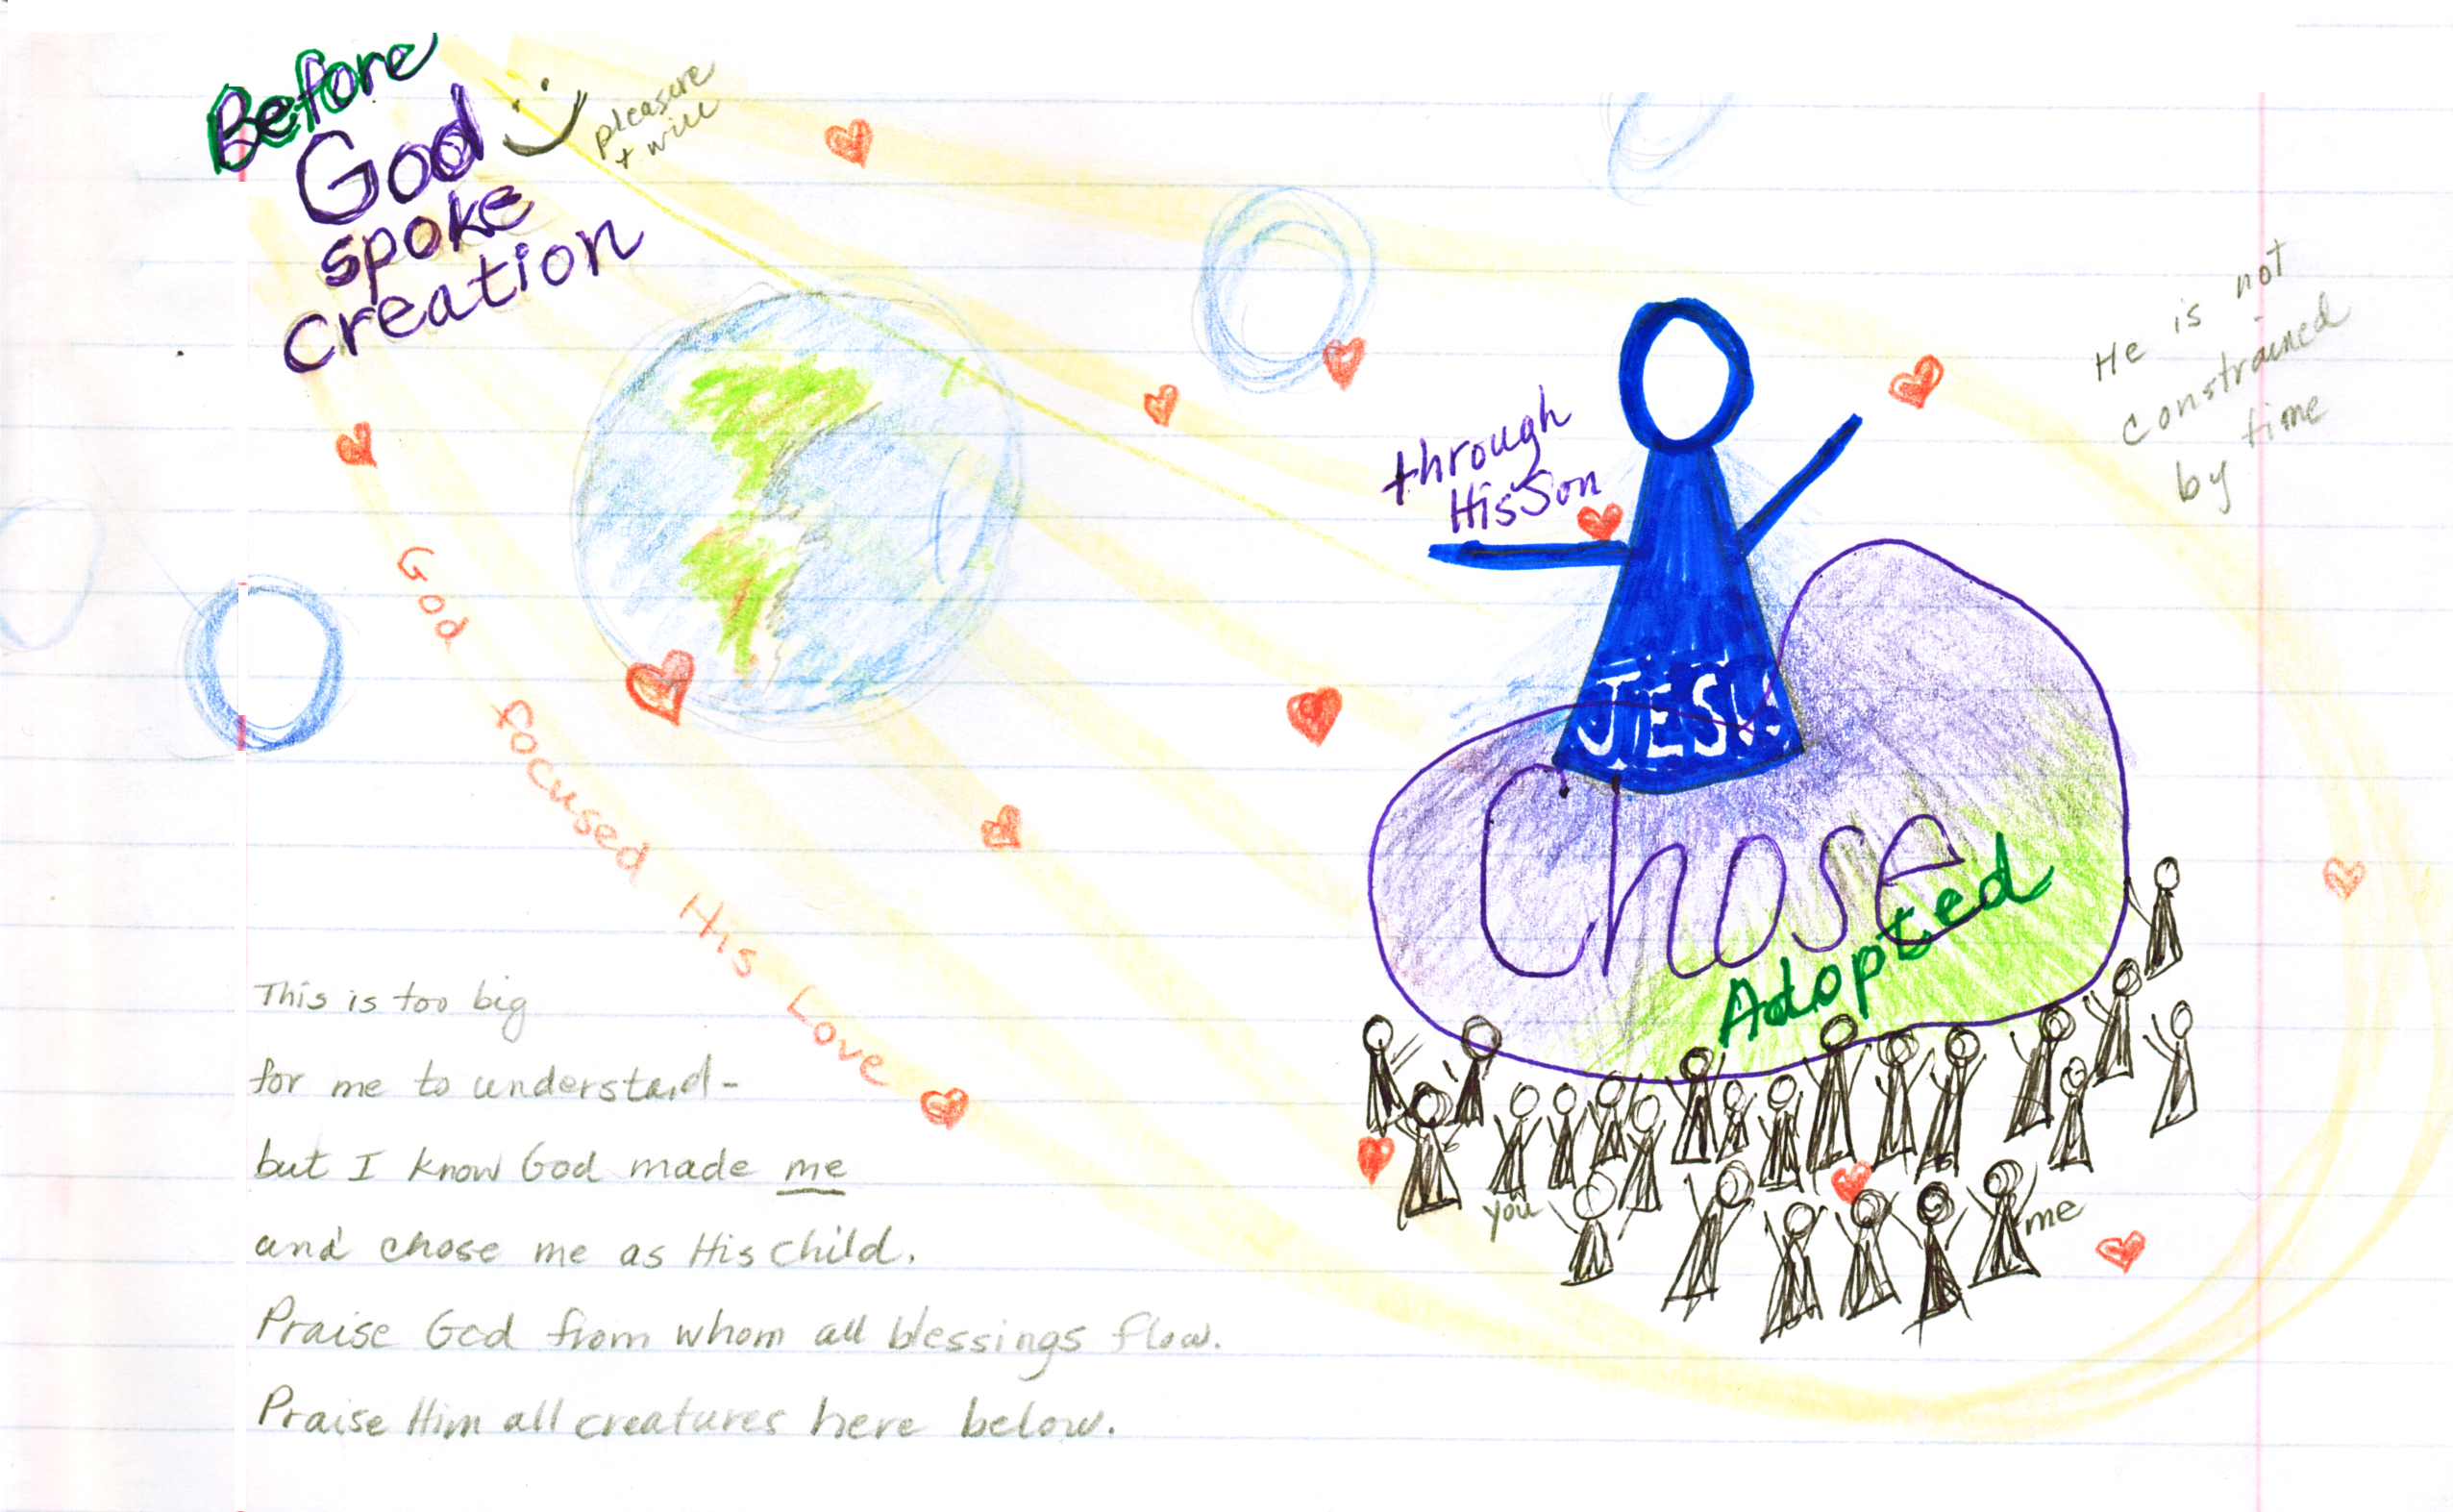 Before
God
spoke
creation
pleasure
+ will
He is not
constrained
by time
through
His Son
JESUS
Chose
Adopted
God focused His Love
you
me
This is too big
for me to understand -
but I know God made me
and chose me as His child.
Praise God from whom all blessings flow.
Praise Him all creatures here below.